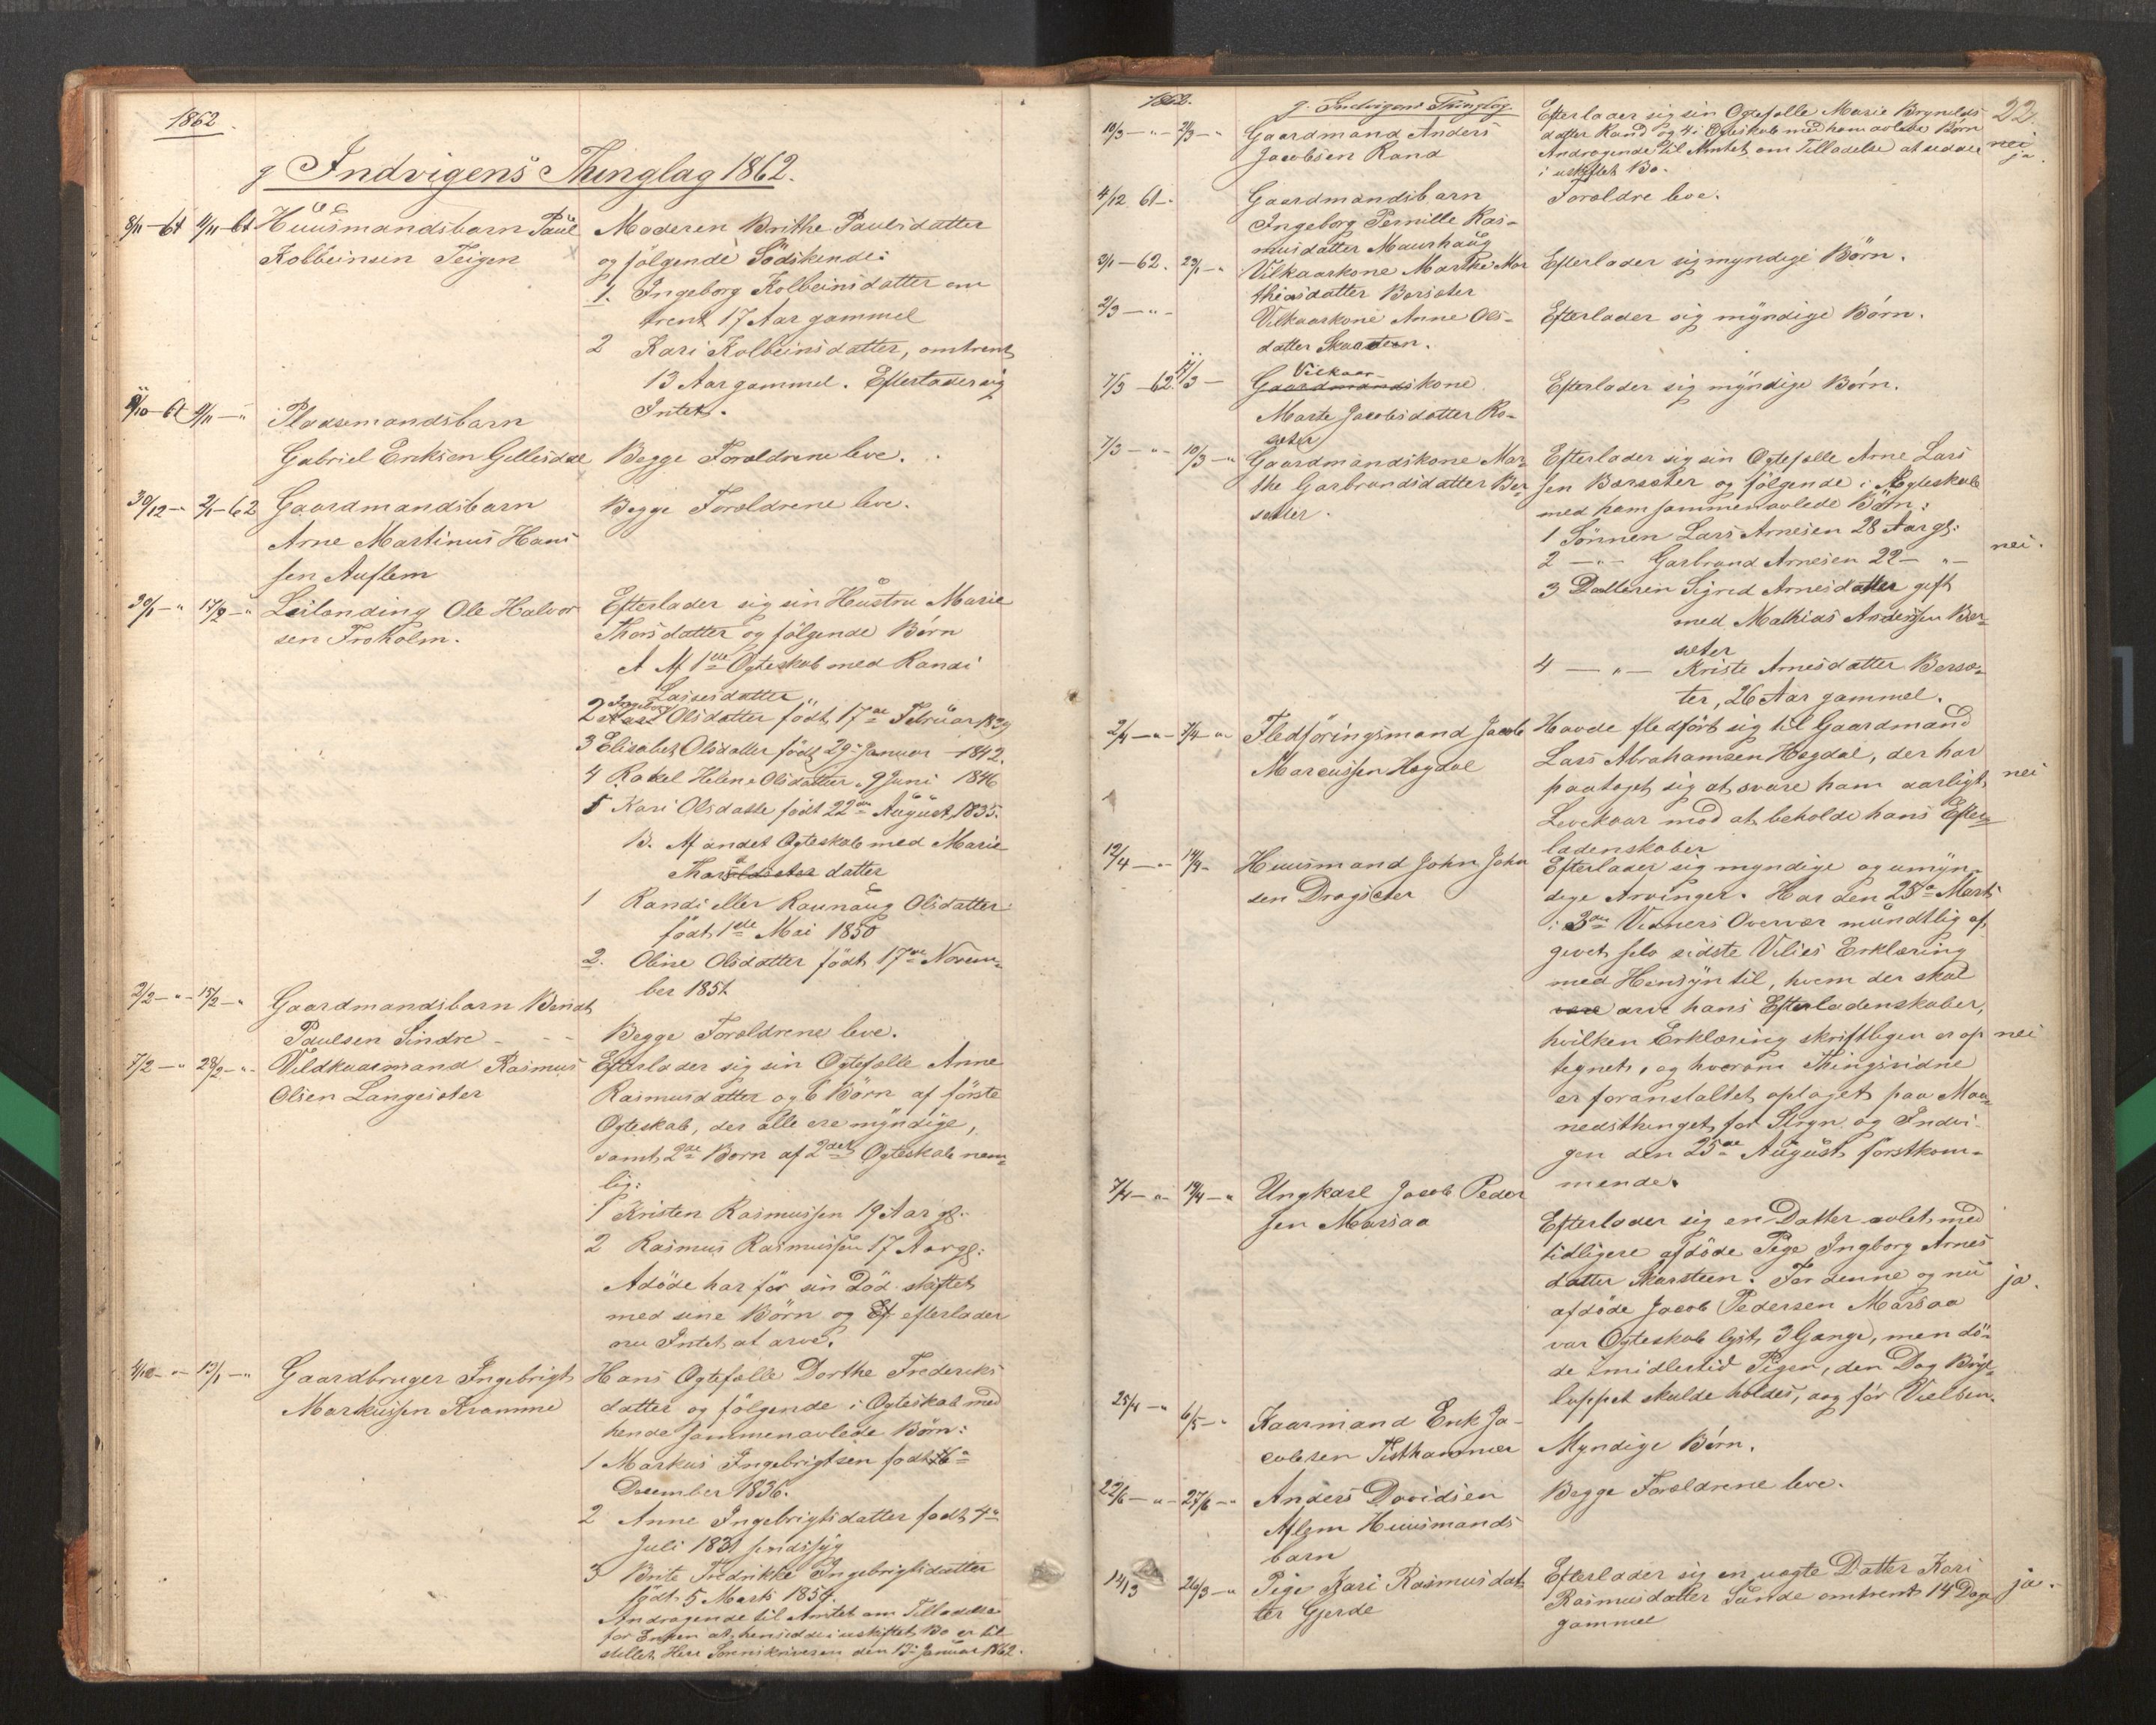 1862.
g Indvigens Thinglag 1862.
8/11 - 61 11/11 - 61 Huusmandsbarn Paul
Kolbeinsen Teigen
Moderen Brithe Paulsdatter
og følgende Södskende:
1. Ingeborg Kolbeinsdatter om
trent 17 Aar gammel
2 Kari Kolbeinsdatter, omtrent
13 Aar gammel. Efterlader sig
Intet.
Pladsemandsbarn
Gabriel Eriksen Gillesdal
Begge Forældrene leve.
30/12 - " 2/1 - 62 Gaardmandsbarn
Arne Martinus Hans
sen Auflem
Begge Forældrene leve.
30/1 - " 17/2 - " Leilending Ole Halvor
sen Troholm.
Efterlader sig sin Hustru Marie
Thorsdatter og følgende Börn
A Af 1ste Ogteskab med Randi
Lassesdatter
Ingeborg
2 Olsdatter født 17de Februar 1839
3 Elisabet Olsdatter født 29 Januar 1842.
4 Rakel Helene Olsdatter 9 Juni 1846
5 Kari Olsdatte født 22de August 1835.
B. Af andet Ogteskab med Marie
datter
1 Randi eller Raunaug Olsdatter
født 1ste Mai 1850
2. Oline Olsdatter født 17de Novem-
ber 1851
2/2 - " - 15/2 - " Gaardmandsbarn Bendt
Paulsen Sindre
Begge Forældrene leve.
7/2 - " 28/2 - " Vildkaarmand Rasmus
Olsen Langesæter
Efterlader sig sin Ogtefælle Anne
Rasmusdatter og 6 Börn af förste
Ogteskab, der alle ere myndige,
samt 2de Börn af 2det Ogteskab nem-
lig:
1 Kristen Rasmussen 19 Aar gl.
2 Rasmus Rasmussen 17 Aar gl:
Adöde har för sin Död skiftet
med sine Börn og Ef efterlader
nu Intet at arve.
13/1 - " Gaardbruger Ingebrigt
Markussen Kramme
Hans Ogtefælle Dorthe Frederiks
datter og følgende i Ogteskab med
hende sammenavlede Börn:
1 Markus Ingebrigtsen født 16
Desember 1836.
2 Anne Ingebrigtsdatter født 4de
Juli 1831 sindssyg
3 Brite Fredrikke Ingebrigtsdatter
født 5 Marts 1854.
Andragende til Amtet om Tilladelse
for Enken at hensidde i uskiftet Bo er til
stillet Herr Sorenskriveren den 13 Januar 1862.
1862. g. Indvigens Thinglag 22
10/3 - " - Gaardmand Anders
Jacobsen Rand
Efterlader sig sin Ogtefælle Marie Brynilds
datter Rand og 4 i Ogteskab med ham avlede Börn
Andragende til Amtet om Tilladelse at sidde
i uskiftet Bo.
nei
ja
4/12 61 - Gaardmandsbarn
Ingeborg Pernille Ras-
musdatter Maurhaug
Forældre leve.
3/1 - 62. 29/1 - " Vilkaarkone Marthe Mat
thiasdatter Bersæter
Efterlader sig myndige Börn.
2/3 - " - Vilkaarkone Anne Ols-
datter Skaasteen.
Efterlader sig myndige Börn.
Vilkaar-
7/3 - 62. 11/3 - Gaardmandskone
Marte Jacobsdatter Ro-
seter
Efterlader sig myndige Börn.
7/3 - " - 10/3 - " Gaardmandskone Mar-
the Garbrandsdatter Ber-
sætter.
Efterlader sig sin Ogtefælle Arne Lars
sen Bersæter og følgende i Ægteskab
med ham sammenavlede Börn:
1 Sönnen Lars Arnesen 28 Aar gl:
2 - " - Garbrand Arnesen 22 - " -
nei.
3 Datteren Sigrid Arnesdatter gift
med Mathias Anderssen Ber-
seter
4 - " - Kriste Arnesdatter Bersæ-
ter, 26 Aar gammel.
2/4 - " - 7/4 - " Fledføringsmand Jacob
Marcussen Hegdal
Havde fledført sig til Gaardmand
Lars Abrahamsen Hegdal, der har
paataget sig at svare ham aarligt
Levekaar mod at beholde hans Efter-
ladenskaber
nei
12/4 - " - 14/4 - Huusmand John John
sen Dragseter
Efterlader sig myndige og umyn-
dige Arvinger. Har den 25de Marts
i 3de Vidners Overvær mundtlig af
givet selv sidste Vilies Erklæring
med Hensyn til, hvem der skal
være arve hans Efterladenskaber,
hvilken Erklæring skriftligen er op
tegnet, og hvorom Thingsvidne
er foranstaltet optaget paa Maa-
nedsthinget for Stryn og Indvi-
gen den 25de August forstkom-
mende.
nei
7/4 - " - 14/4 - " Ungkarl Jacob Peder
sen Marsaa
Efterlader sig en Datter avlet med
tidligere afdöde Pige Ingborg Arnes
datter Skarsteen. For denne og nu
afdöde Jacob Pedersen Marsaa
var Ogteskab lyst 3 Gange, men dö-
de imidlertid Pigen, den Dag Bryl-
luppet skulde holdes, dog för Vielsen.
ja.
25/4 - " 6/5 - " Kaarmand Erik Ja-
cobsen Tisthammer
Myndige Börn.
22/6 - " - 27/6 - " Anders Davidsen
Aflem Huusmands
barn
Begge Forældrene leve.
14/3 26/3 - " Pige Kari Rasmusdat
ter Gjerde
Efterlader sig en uægte Datter Kari
Rasmusdatter Sunde omtrent 14 Dage
gammel
ja.